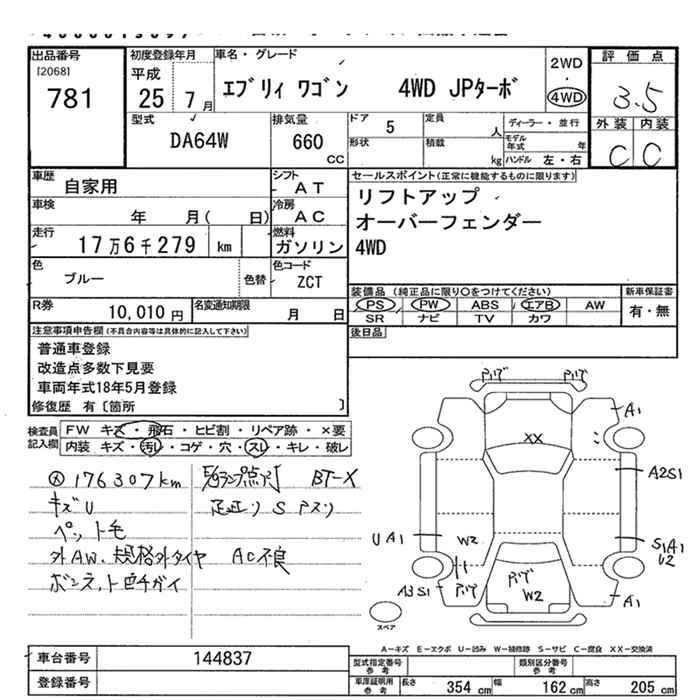 出品番号 初度登録年月 車名・グレード 評価点
[2068] 平成 2WD
781 25 7月 エブリィ ワゴン 4WD JPターボ ・ 3.5
4WD
型式 排気量 ドア 5 定員 人 ディーラー・並行 外装 内装
DA64W 660 CC 形状 積載 kg モデル年式 年 C C
ハンドル 左・右
車歴 自家用 シフト AT セールスポイント(正常に機能するものに限ります)
車検 年 月( 日) 冷房 AC リフトアップ
走行 17万6千279 km 燃料 ガソリン オーバーフェンダー
色 ブルー 色替 色コード ZCT 4WD
R券 10,010円 名変通知期限 月 日 装備品(純正品に限り○をつけてください) 新車保証書
PS PW ABS エアB AW 有・無
SR ナビ TV カワ
注意事項申告欄(不具合内容等は具体的に記入して下さい) 後日品
普通車登録
改造点多数下見要
車両年式18年5月登録
修復歴 有[箇所 ]
検査員記入欄 FW キズ・飛石・ヒビ割・リペア跡・×要
内装 キズ・汚レ・コゲ・穴・スレ・キレ・破レ
176307km
キズU
ペット毛
外AW、規格外タイヤ AC不良
ボンネット色チガイ
BT-X
S
A1
XX
A2S1
UA1
W2
S1A1
U2
A3S1
W2
A1
スペア
A-キズ E-エクボ U-凹み W-補修跡 S-サビ C-腐食 XX-交換済
車台番号 144837 型式指定番号 参考 類別区分番号 参考
登録番号 車庫証明用 参考 長さ 354 cm 幅 162 cm 高さ 205 cm